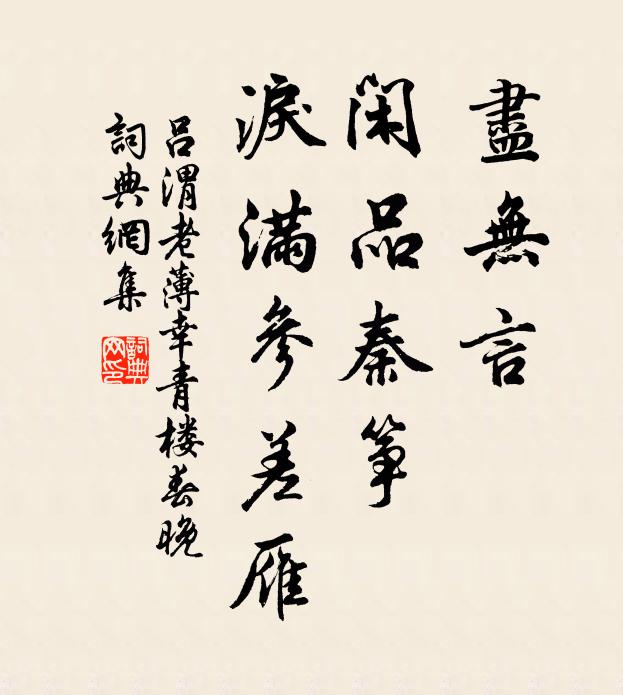 盡無言
閑品秦箏
淚滿參差雁
呂渭老薄幸青楼春晚
詞典網集
詞典网印